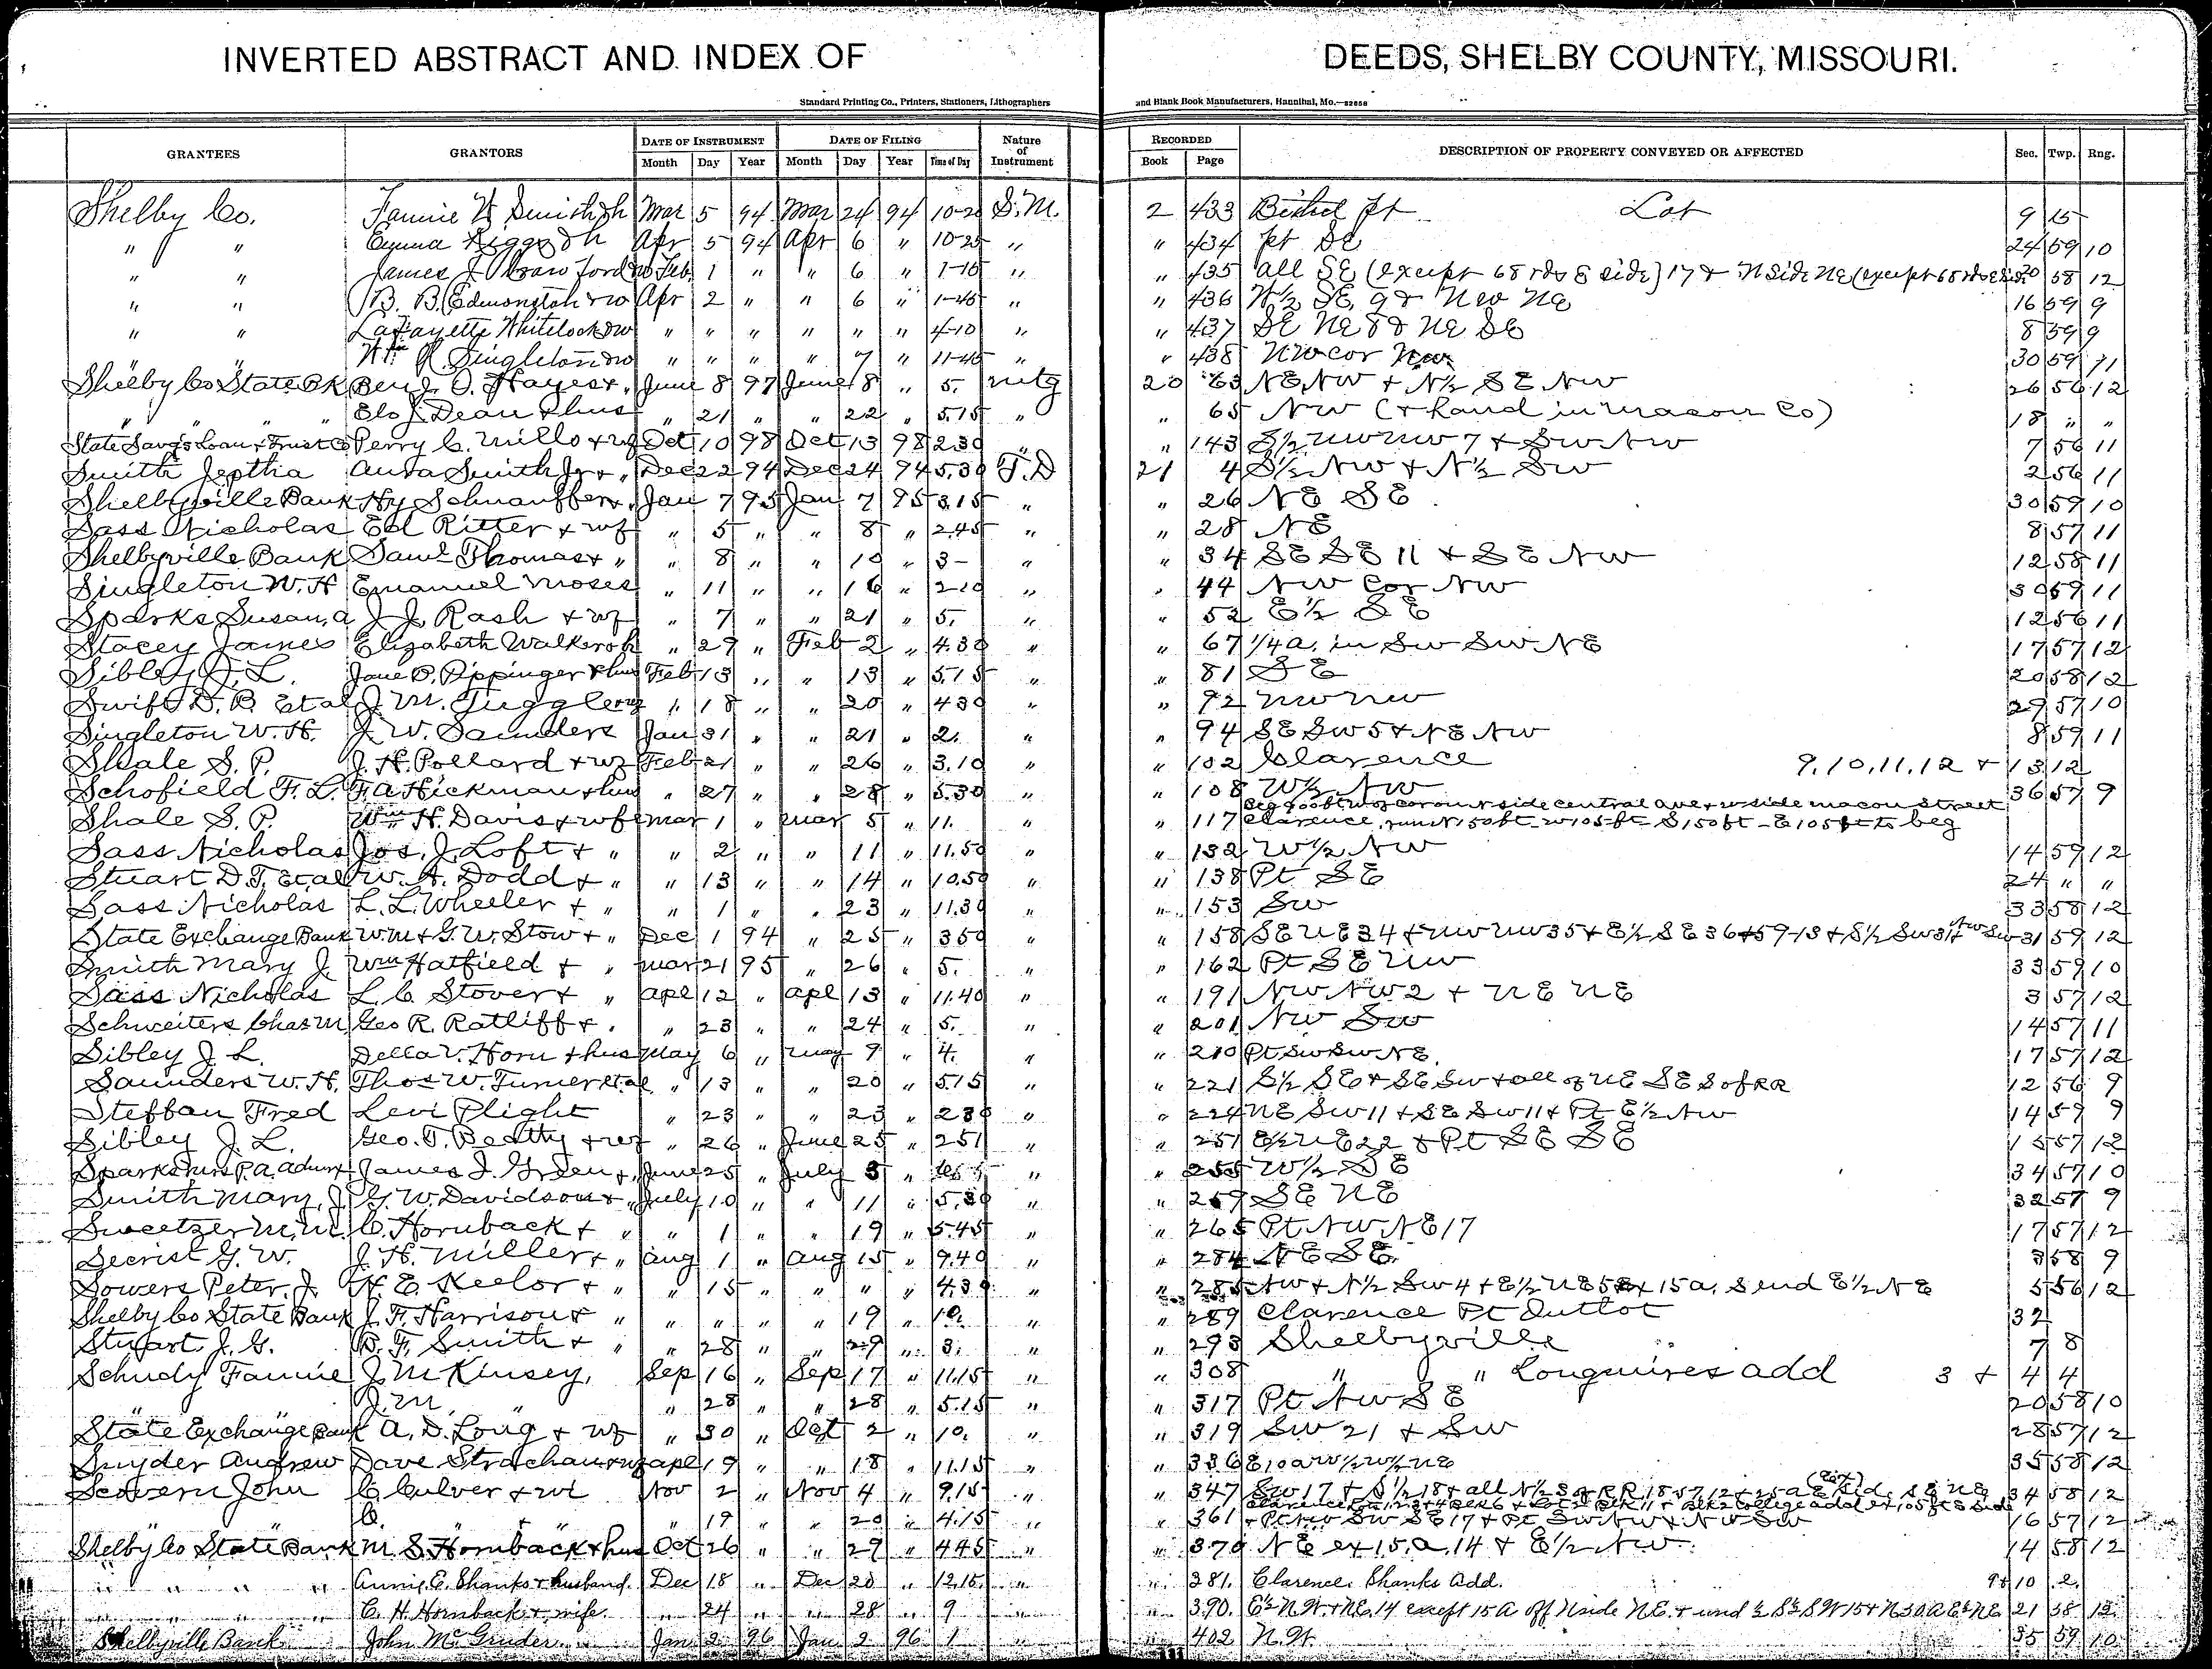 INVERTED ABSTRACT AND INDEX OF DEEDS, SHELBY COUNTY, MISSOURI.
Standard Printing Co., Printers, Stationers, Lithographers and Blank Book Manufacturers, Hannibal, Mo.
GRANTEES GRANTORS DATE OF INSTRUMENT DATE OF FILING Nature of Instrument RECORDED DESCRIPTION OF PROPERTY CONVEYED OR AFFECTED Sec. Twp. Rng.
Month Day Year Month Day Year Time of Day Book Page
Shelby Co. Fannie Mar 5 94 Mar 24 94 10-20 S.M. 2 433 Bethel pt Lot 9 15
" " Emma Riggs Apr 5 94 Apr 6 " 10-25 " " 434 pt SE 24 59 10
" " James Crawford Feb 1 " " 6 " 1-15 " " 435 all SE (except 68 rds E side) 17 & N side NE (except 68 rds 20 58 12
" " B. B. Edmonston & w Apr 2 " " 6 " 1-45 " " 436 W½ SE 9 & NW NE 16 59 9
" " Lafayette Whitelock & w " " " " " " 4-10 " " 437 SE NE 8 & NE SE 8 59 9
" " Wm R Singleton & w " " " " 7 " 11-45 " " 438 NW cor NW 30 59 11
Shelby Co State Bk Benj. O. Hayes & " June 8 97 June 8 " 5. mtg 20 63 NE NW & N½ SE NW 26 56 12
" " " Dean & hus " 21 " " 22 " 5.15 " " 65 NW (& Land in Macon Co) 18 " "
State Savgs Loan & Trust Co Perry C. Mills & wf Oct 10 98 Oct 13 98 2.30 " 143 S½ NW NW 7 & SW NW 7 56 11
Smith Jeptha Smith Jr & " Dec 22 94 Dec 24 94 5.30 T.D 21 4 S½ NW & N½ SW 2 56 11
Shelbyville Bank Hy Schnauffer & " Jan 7 95 Jan 7 95 3.15 " " 26 NE SE 30 59 10
Sass Nicholas Ed Ritter & wf " 5 " " 8 " 2.45 " " 28 NE 8 57 11
Shelbyville Bank Saml Thomas & " " 8 " " 10 " 3- " " 34 SE SE 11 & SE NW 12 58 11
Singleton W. H Emanuel Moses " 11 " " 16 " 2-10 " " 44 NW Cor NW 30 59 11
Sparks Susan, a J. J. Rash & wf " 7 " " 21 " 5. " " 52 E½ SE 12 56 11
Stacey James Elizabeth Walker " 29 " Feb 2 " 4.30 " " 67 1/4 a. in SW SW NE 17 57 12
Sibley J. L. Jane P. Pippinger & hus Feb 13 " " 13 " 5.15 " " 81 SE 20 58 12
Swift D. B. Etal J. M. Tuggle " 18 " " 20 " 4 30 " " 92 NW NW 29 57 10
Singleton W. H. J. W. Saunders Jan 31 " " 21 " 2. " " 94 SE SW 5 & NE NW 8 59 11
Shale S. P. J. H. Pollard & wf Feb 21 " " 26 " 3.10 " " 102 Clarence 9, 10, 11, 12 & 13 12
Schofield F. L. F. A Hickman & hus " 27 " " 28 " 5.30 " " 108 W½ NW 36 57 9
Shale S. P. Wm H. Davis & wf Mar 1 " Mar 5 " 11. " " 117 side central ave & w side macon street
Clarence, run N 150 ft W 105 ft S 150 ft E 105 ft to beg
Sass Nicholas Jos. J. Loft & " " 2 " " 11 " 11.50 " " 132 W½ NW 14 59 12
Stuart D. T. Etal W. A. Dodd & " " 13 " " 14 " 10.50 " " 138 Pt SE 24 " "
Sass Nicholas L. L. Wheeler & " " 1 " " 23 " 11.30 " " 153 SW 33 58 12
State Exchange Bank Wm & G. W. Stow & " Dec 1 94 " 25 " 3 50 " " 158 SE NE 34 & NW NW 35 & E½ SE 36 59-13 & S½ SW 31 & NW SW 31 59 12
Smith Mary J. Wm Hatfield & " Mar 21 95 " 26 " 5. " " 162 Pt SE NW 33 59 10
Sass Nicholas L. C. Stover & " Apl 12 " Apl 13 " 11.40 " " 191 NW NW 2 & NE NE 3 57 12
Schweiters Chas M Geo R. Ratliff & " " 23 " " 24 " 5. " " 201 NW SW 14 57 11
Sibley J. L. Della V. Horn & hus May 6 " May 9 " 4. " " 210 Pt SW SW NE. 17 57 12
Saunders W. H. Thos W. Turner et al " 13 " " 20 " 5.15 " " 221 S½ SE & SE SW & all of NE SE S of RR 12 56 9
Steffan Fred Levi Plight " 23 " " 23 " 2 30 " " 224 NE SW 11 & SE SW 11 & Pt E½ NW 14 59 9
Sibley J. L. Geo. T. Beathy & wf " 26 " June 25 " 2 51 " " 251 E½ NE 22 & Pt SE SE 15 57 12
Sparks Mrs P. A. Admx James J. Green & " June 25 " July 3 " " " 255 W½ SE 34 57 10
Smith Mary, J. G. W. Davidson & " July 10 " " 11 " 5.30 " " 259 SE NE 32 57 9
Sweetzer M. M. C. Hornback & " " 1 " " 19 " 5.45 " " 265 Pt NW NE 17 17 57 12
Secrist G. W. J. H. Miller & " Aug 1 " Aug 15 " 9.40 " " 284 NE SE. 3 58 9
Sowers Peter. J. H. E. Keelor & " " 15 " " " " 4.30 " " 285 NW & N½ SW 4 & E½ NE 5 & 15 a. S end E½ NE 5 56 12
Shelby Co State Bank J. F. Harrison & " " " " " 19 " 10. " " 289 Clarence Pt Outlot 32
Stuart J. G. B. F. Smith & " " 28 " " 29 " 3. " " 293 Shelbyville 7 8
Schudy Fannie J. M Kinsey, Sep 16 " Sep 17 " 11.15 " " 308 " " Longmires add 3 & 4 4
" " J. M. " " 28 " " 28 " 5.15 " " 317 Pt NW SE 20 58 10
State Exchange Bank A. D. Long & wf " 30 " Oct 2 " 10. " " 319 SW 21 & SW 28 57 12
Snyder Andrew Dave Strachan & wf Apl 19 " " 18 " 11.15 " " 336 E 10 a W½ W½ NE 35 58 12
John C Culver & wf Nov 2 " Nov 4 " 9.15 " " 347 SW 17 & S½ 18 & all N½ S of RR 18 57 12 & 25 a E Side SE NE 34 58 12
C. " " " 19 " " 20 " 4.15 " " 361 SW SE 17 & Pt SW NW & NW SW 16 57 12
Shelby Co State Bank M. S. Hornback & hus Oct 26 " " 29 " 4 45 " " 370 NE ex 15. a. 14 & E½ NW. 14 58 12
" " " " Annie E. Shanks & husband. Dec 18 " Dec 20 " 12.15 " " 381. Clarence. Shanks Add. 9 & 10 2.
" " " " C. H. Hornback & wife. " 24 " " 28 " 9 " " 390. E½ N.W. & NE. 14 except 15 A off N side N.E. & und ½ S½ SW 15 & N 30 A E½ NE 21 58 12.
Shelbyville Bank John McGruder. Jan 2 96 Jan 2 96 1 " " 402 N.W. 35 59 10